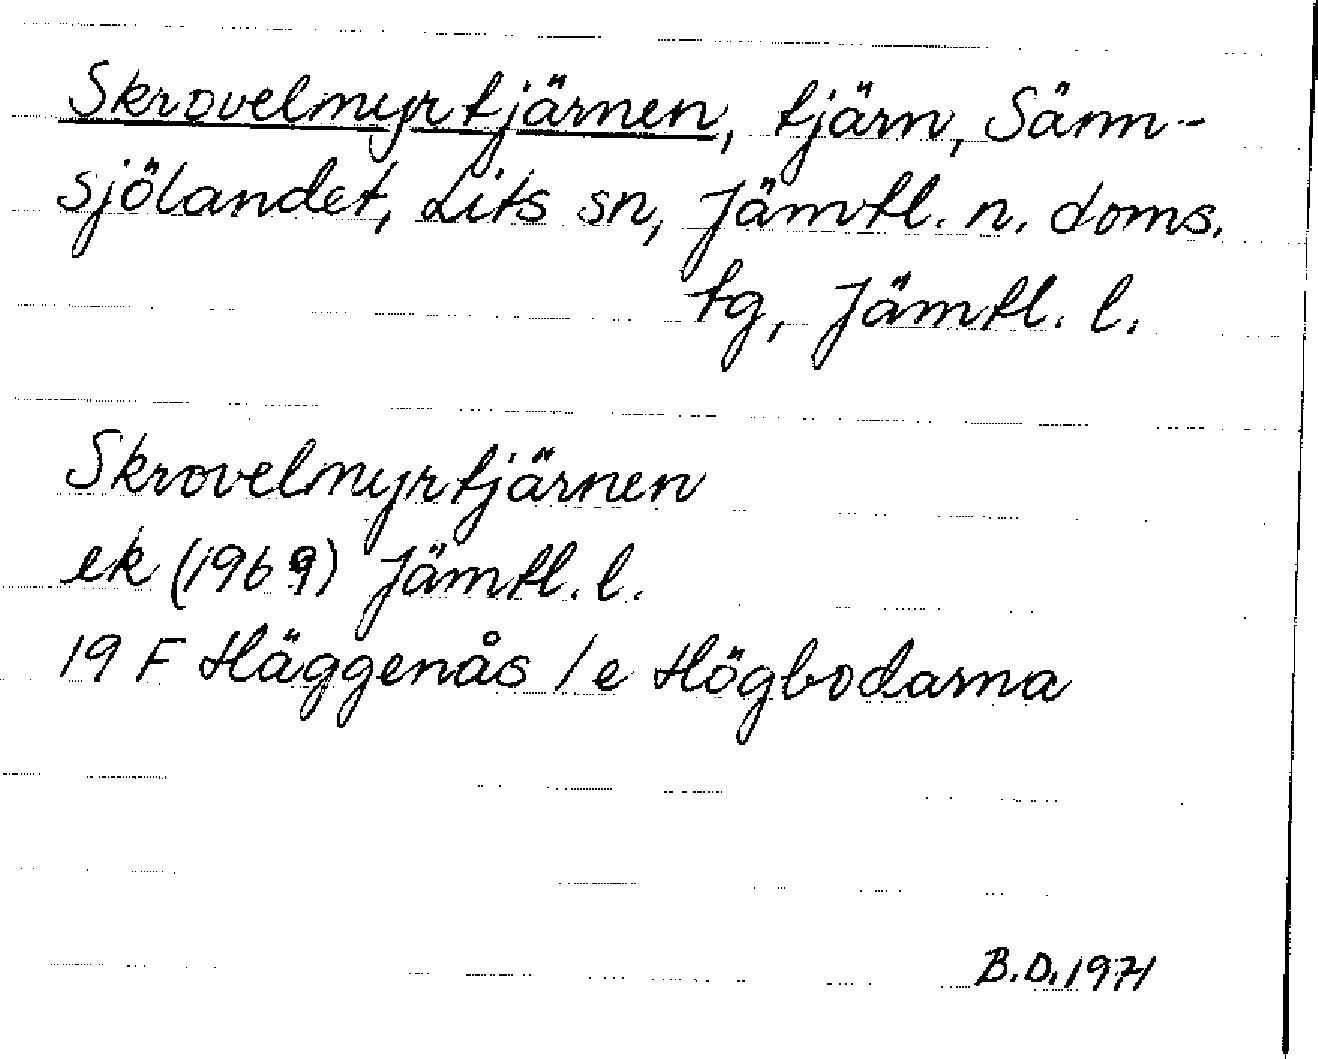 Skrovelmyrtjärnen, tjärn, Sänn-
sjölandet, Lits sn, Jämtl. n. doms.
tg, Jämtl. l.
Skrovelmyrtjärnen
ek (1969) Jämtl. l.
19 F Häggenås / e Högbodarna
B.D. 1971